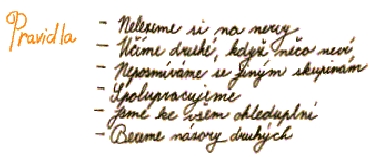 Pravidla
- Nelezeme si na nervy
- Učíme druhé, když něco neví
- Neposmíváme se jiným skupinám
- Spolupracujeme
- Jsme ke všem ohleduplní
- Bereme názory druhých